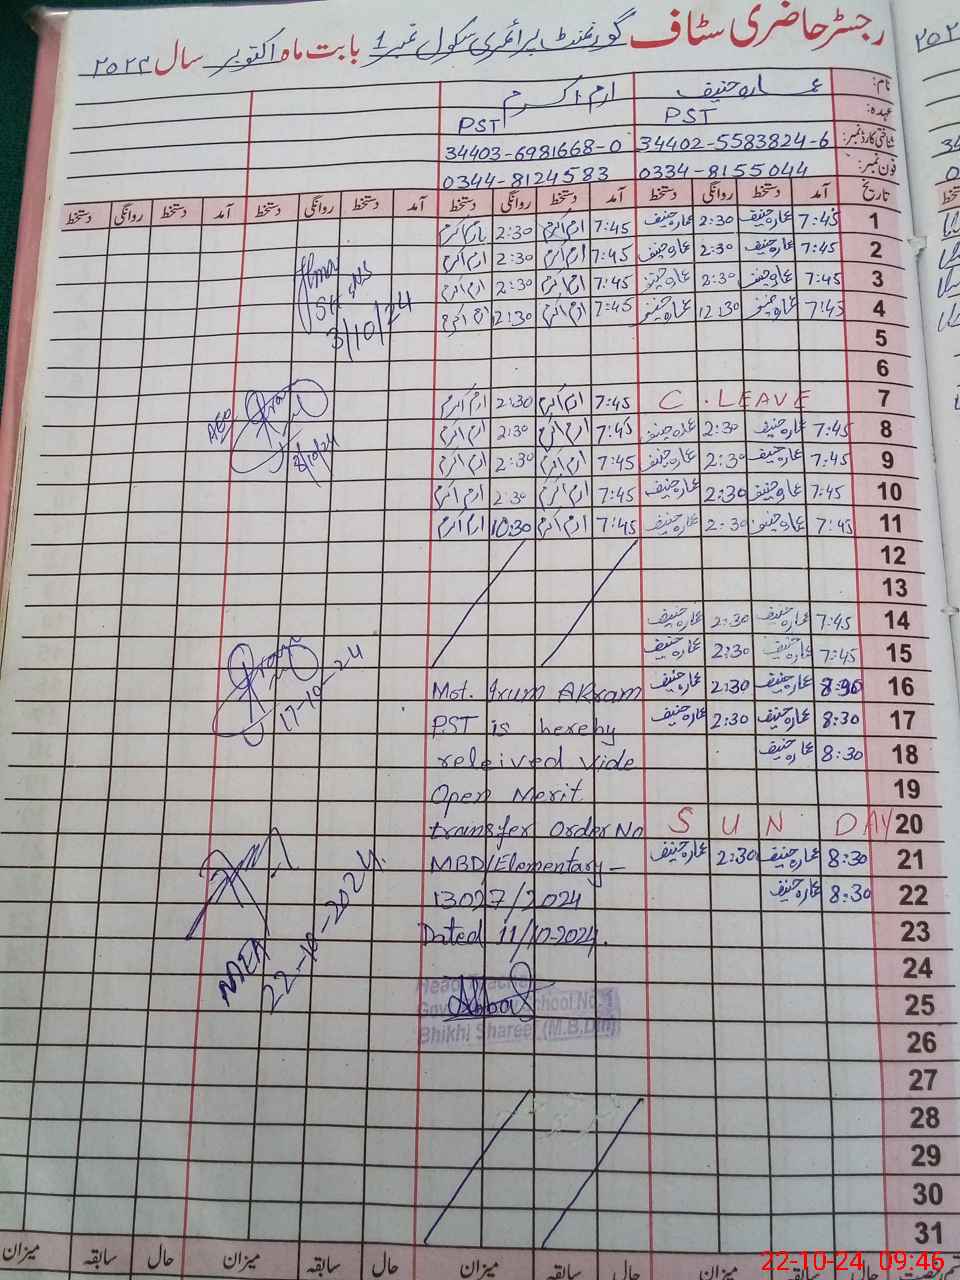 رجسٹر حاضری سٹاف گورنمنٹ پرائمری سکول نمبر 1 بابت ماہ اکتوبر سال ۲۰۲۴
نام: عمارہ حنیف ارم اکرم
عہدہ: PST PST
شناختی کارڈ نمبر: 34402-5583824-6 34403-6981668-0
فون نمبر: 0334-8155044 0344-8124583
تاریخ آمد دستخط روانگی دستخط آمد دستخط روانگی دستخط آمد دستخط روانگی دستخط آمد دستخط روانگی دستخط
1 7:45 عمارہ حنیف 2:30 عمارہ حنیف 7:45 ارم اکرم 2:30 ارم اکرم
2 7:45 عمارہ حنیف 2:30 عمارہ حنیف 7:45 ارم اکرم 2:30 ارم اکرم
3 7:45 عمارہ حنیف 2:30 عمارہ حنیف 7:45 ارم اکرم 2:30 ارم اکرم
4 7:45 عمارہ حنیف 12:30 عمارہ حنیف 7:45 ارم اکرم 12:30 ارم اکرم
3/10/24
5
6
7 C.LEAVE 7:45 ارم اکرم 2:30 ارم اکرم
8 7:45 عمارہ حنیف 2:30 عمارہ حنیف 7:45 ارم اکرم 2:30 ارم اکرم
AEO
8/10/24
9 7:45 عمارہ حنیف 2:30 عمارہ حنیف 7:45 ارم اکرم 2:30 ارم اکرم
10 7:45 عمارہ حنیف 2:30 عمارہ حنیف 7:45 ارم اکرم 2:30 ارم اکرم
11 7:45 عمارہ حنیف 2:30 عمارہ حنیف 7:45 ارم اکرم 10:30 ارم اکرم
12
13
14 7:45 عمارہ حنیف 2:30 عمارہ حنیف
15 7:45 عمارہ حنیف 2:30 عمارہ حنیف
16 8:30 عمارہ حنیف 2:30 عمارہ حنیف
17 8:30 عمارہ حنیف 2:30 عمارہ حنیف
17-10-24
18 8:30 عمارہ حنیف
19
20 SUN DAY
21 8:30 عمارہ حنیف 2:30 عمارہ حنیف
22 8:30 عمارہ حنیف
23
24
25
26
27
28
29
30
31
Mst. Irum Akram
PST is hereby
releived vide
Open Merit
transfer Order No
MBD/Elementary-
13027/2024
Dated 11/10-2024.
Head Teacher
Govt. School No. 1
Bhikhi Shareef (M.B.Din)
MEA
22-10-2024
میزان سابقہ حال میزان سابقہ حال میزان سابقہ حال میزان
22-10-24 09:46